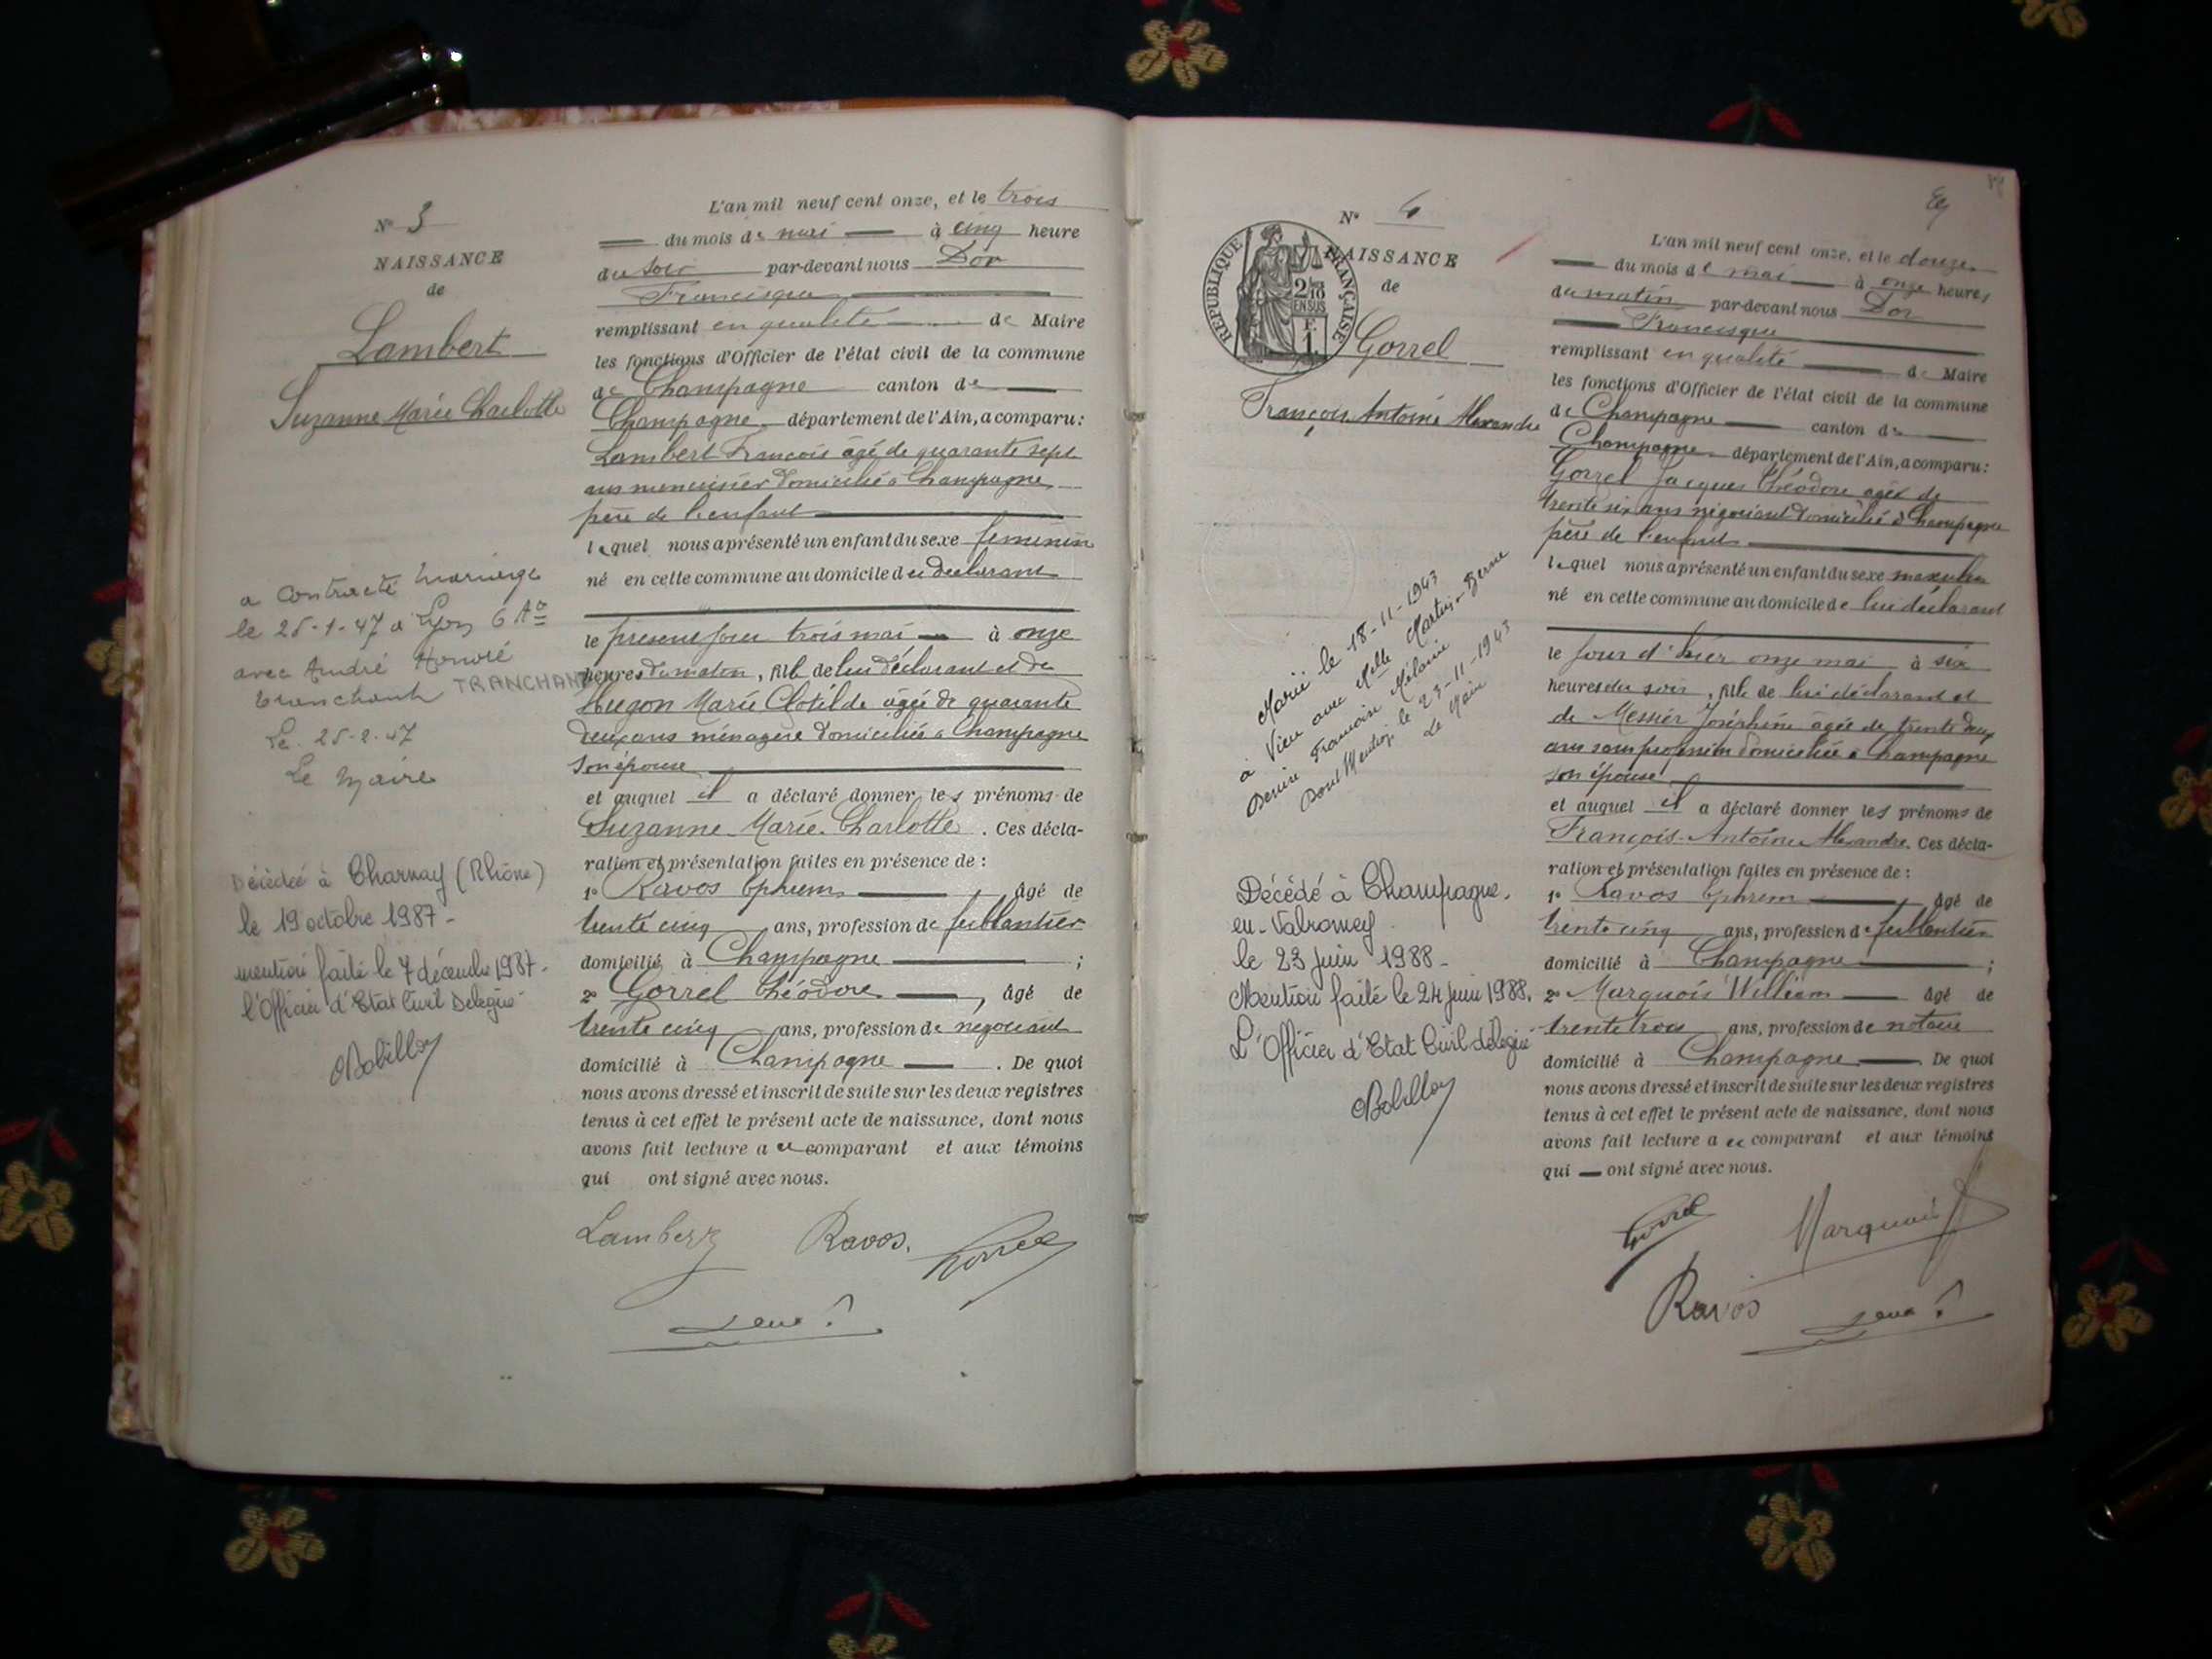 N° 3
NAISSANCE
de
Lambert
Suzanne Marie Charlotte
a contracté mariage
le 25-1-47 à Lyon 6 Ar
avec André Honoré
Tranchant TRANCHANT
Le 25-2-47
Le Maire
Décédée à Charnay (Rhône)
le 19 octobre 1987-
mention faite le 7 décembre 1987-
l'Officier d'Etat Civil Délégué
L'an mil neuf cent onze, et le trois
du mois de mai à cinq heure
du soir par-devant nous Dor
Francisque
remplissant en qualité de Maire
les fonctions d'Officier de l'état civil de la commune
de Champagne canton de
Champagne département de l'Ain, a comparu:
Lambert François âgé de quarante sept
ans menuisier domicilié à Champagne
père de l'enfant
lequel nous a présenté un enfant du sexe féminin
né en cette commune au domicile du déclarant
le présent jour trois mai à onze
heures du matin, fille de lui déclarant et de
Hugon Marie Clotilde âgée de quarante
deux ans ménagère domiciliée à Champagne
son épouse
et auquel il a déclaré donner les prénoms de
Suzanne Marie Charlotte. Ces décla-
ration et présentation faites en présence de :
1° Ravos Ephrem, âgé de
trente cinq ans, profession de ferblantier
domicilié à Champagne ;
2° Gorrel Théodore, âgé de
trente cinq ans, profession de négociant
domicilié à Champagne. De quoi
nous avons dressé et inscrit de suite sur les deux registres
tenus à cet effet le présent acte de naissance, dont nous
avons fait lecture au comparant et aux témoins
qui ont signé avec nous.
Lambert Ravos. Gorrel
N° 4
NAISSANCE
de
RÉPUBLIQUE FRANÇAISE
2/10
EN SUS
F.
1
Gorrel
François Antoine Alexandre
Marié le 18-11-1943
à Vieu avec Melle Martin-Berne
Denise Françoise Mélanie
Dont Mention le 23-11-1943
Le Maire
Décédé à Champagne.
en-Valromey
le 23 juin 1988-
Mention faite le 24 juin 1988.
L'Officier d'Etat Civil délégué
L'an mil neuf cent onze, et le douze
du mois de mai à onze heures
du matin par-devant nous Dor
Francisque
remplissant en qualité de Maire
les fonctions d'Officier de l'état civil de la commune
de Champagne canton de
Champagne département de l'Ain, a comparu:
Gorrel Jacques Théodore âgé de
trente six ans négociant domicilié à Champagne
père de l'enfant
lequel nous a présenté un enfant du sexe masculin
né en cette commune au domicile de lui déclarant
le jour d'hier onze mai à six
heures du soir, fils de lui déclarant et
de Messier Joséphine âgée de trente deux
ans sans profession domiciliée à Champagne
son épouse
et auquel il a déclaré donner les prénoms de
François-Antoine Alexandre. Ces décla-
ration et présentation faites en présence de :
1° Ravos Ephrem, âgé de
trente cinq ans, profession de ferblantier
domicilié à Champagne ;
2° Marquois William âgé de
trente trois ans, profession de notaire
domicilié à Champagne De quoi
nous avons dressé et inscrit de suite sur les deux registres
tenus à cet effet le présent acte de naissance, dont nous
avons fait lecture au comparant et aux témoins
qui ont signé avec nous.
Gorrel Marquois
Ravos